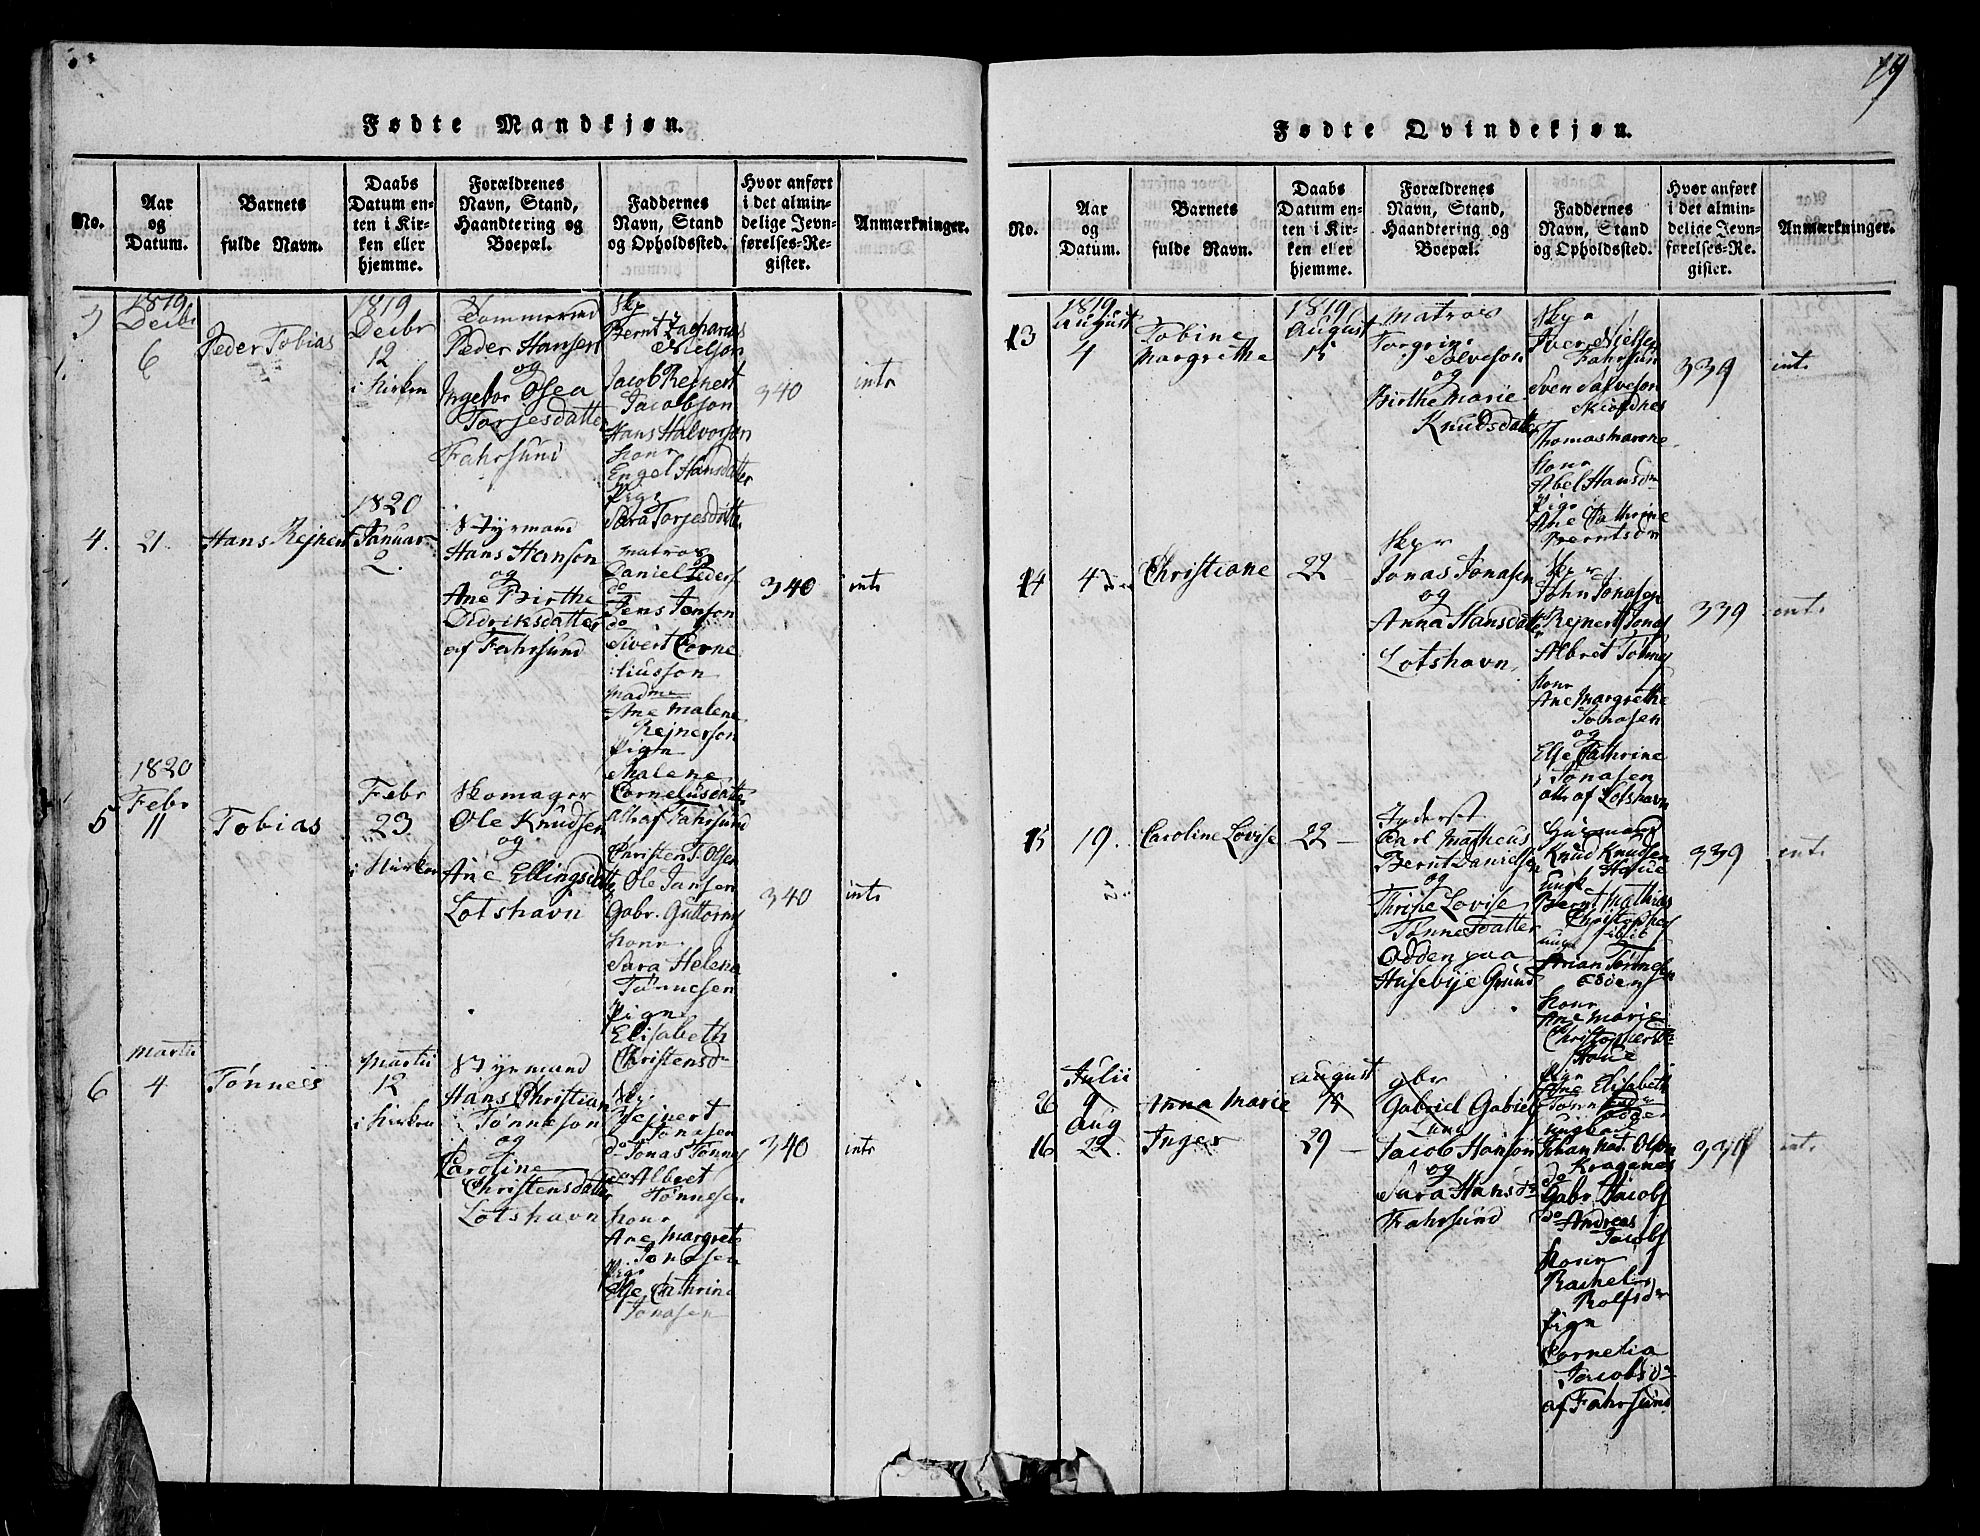 19
Fødte Mandkjøn.
No.
Aar
og
Datum.
Barnets
fulde Navn.
Daabs
Datum en-
ten i Kir-
ken eller
hjemme.
Forældrenes
Navn, Stand,
Haandtering og
Boepæl.
Faddernes
Navn, Stand
og Opholdssted.
Hvor anført
i det almin-
delige Jevn-
førelses-Re-
gister.
Anmærkninger.
3
1819
Decbr
6
Peder Tobias
1819
Decbr
12
i Kirken
Tommermd
Peder Hansen
og
Ingebor Osea
Torjesdatter
Fahrsund
Skp
Bernt Zacharias
Nielson
Jacob Rejnert
Jacobson
Hans Halvorsen
konr
Engel Hansdatter
Pige
Sara Torjesdatter
340
intr
4.
21.
Hans Rejnert
1820
Januar
2.
Styrmand
Hans Hanson
og
Ane Birthe
Didriksdatter
af Fahrsund
matros
Daniel Peders
do
Jens Jenson
do
Sivert Corne
liusson
Madme
Ane Malene
Rejnerson
Pige
Malene
Cornelusdatter
alle af Fahrsund
340
intr
5
1820
Febr
11
Tobias
Febr
23.
i Kirken
Skomager
Ole Knudsen
og
Ane Ellingsdatter
Lotshavn
Christen T. Olsen
Ole Jansen
Gabr. Guttorms
konr
Sara Helena
Tønnesen
Pigr
Elisabeth
Christensdr
340
intr
6
Martii
4
Tønnes
Martii
12
i Kirken
Styrmand
Hans Christian
Tønneson
og
Caroline
Christensdatter
Lotshavn
Skp
Rejnert
Jonasen
do Jonas Tønnes
do Albret
Tønnesen
konr
Ane Margrete
Jonasen
Pige
Else Cathrine
Jonasen
340
intr
Fødte Qvindekjøn.
No.
Aar
og
Datum.
Barnets
fulde Navn.
Daabs
Datum en-
ten i Kir-
ken eller
hjemme.
Forældrenes
Navn, Stand,
Haandtering og
Boepæl.
Faddernes
Navn, Stand
og Opholdssted.
Hvor anført
i det almin-
delige Jevn-
førelses-Re-
gister.
Anmærkninger.
13
1819
August
4
Tobine
Margrethe
1819
August
15
Matros
Torgrim
Salveson
og
Birthe Marie
Knudsdatter
Skpr
Iver Nielsen
Fahrsund
Sven Salveson
Thomas
konr
Abel Hansdr
Pige
Ane Cathrine
Berntsdr
339
intr
14
4
Christiane
22
Skpr
Jonas Jonasen
og
Anna Hansdatter
Lotshavn
Skpr
John Jonasen
Rejnert Jonas
Albret Tønnes
konr
Ane Margrethe
Jonasen
og
Else Cathrine
Jonasen
alle af Lotshavn
339
intr
15
19.
Caroline Lovise
22
Inderst
Carl Matheus
Bernt Danielsen
og
Thrise Lovise
Tønnesdatter
Odden paa
Husebye Grund
Huusmand
Knud Knudsen
Haue
Bernt Mathias
Christophes
ungk
Arian Tønnesen
Odden
konr
Ane Marie
Christophersdr
Haue
Pige
Ane Elisabeth
Tønnesdr
Odden
339
intr
26
Julii
9
Anna Marie
August
15
gbr
Gabriel Gabriel
Lund
16
Aug
22.
Inger
29
Jacob Hanson
og
Sara Hansdr
Fahrsund
ungkarl
Johan Mat. Olsen
Kraganes
do
Gabr. Jacobs
do Andreas
Jacobs
konr
Rachel
Rolfsdr
Pigr
Cornelia
Jacobsdr
af Fahrsund
339
intr